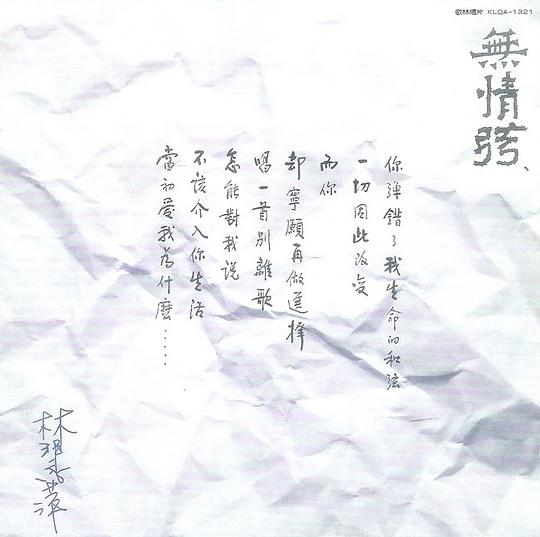 歌林唱片 KLQA-1321
無情弦、
你彈錯了我生命的和弦
一切因此改變
而你
却寧願再做選擇
唱一首別離歌
怎能對我說
不該介入你生活
當初愛我為什麼……